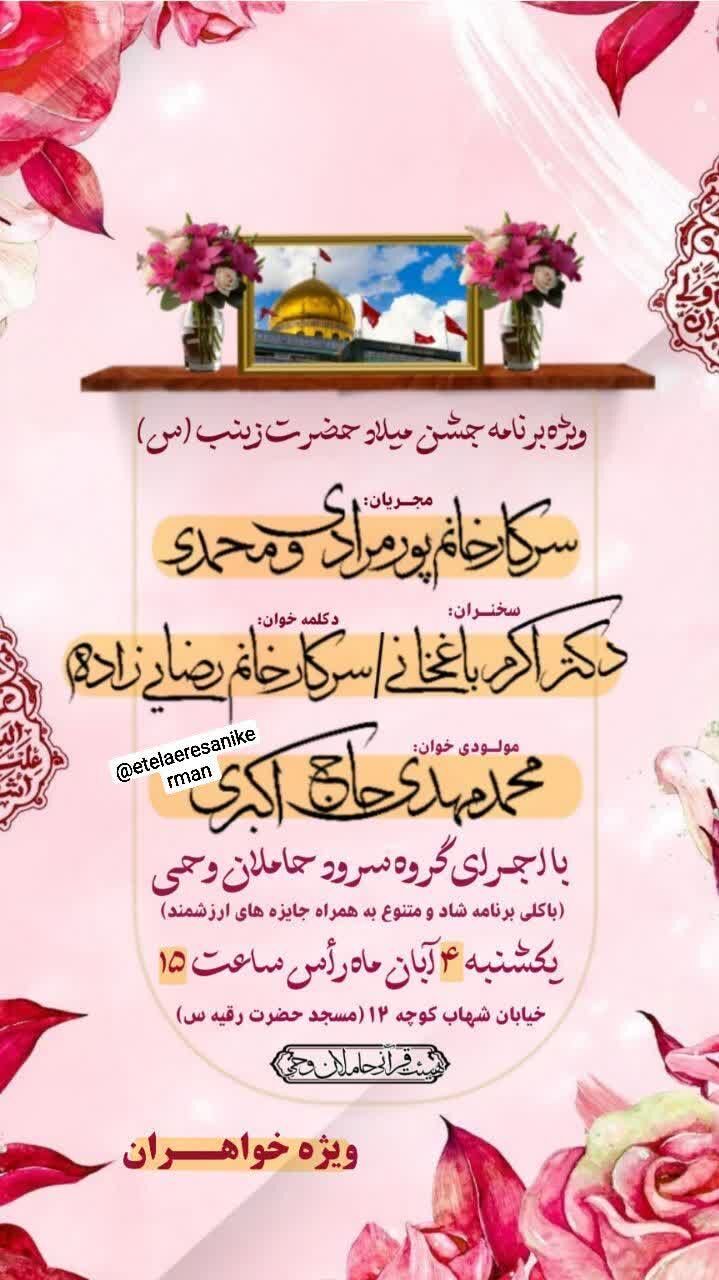 ویژه برنامه جشن میلاد حضرت زینب (س)
مجریان:
سرکار خانم پورمرادی و محمدی
سخنران:
دکتر اکرم باغخانی /
دکلمه خوان:
سرکار خانم رضایی زاده
مولودی خوان:
محمد مهدی حاج اکبری
@etelaeresanike
rman
با اجرای گروه سرود حاملان وحی
(باکلی برنامه شاد و متنوع به همراه جایزه های ارزشمند)
یکشنبه ۴ آبان ماه رأس ساعت ۱۵
خیابان شهاب کوچه ۱۲ (مسجد حضرت رقیه س)
هیئت قرآنی حاملان وحی
ویژه خواهــران